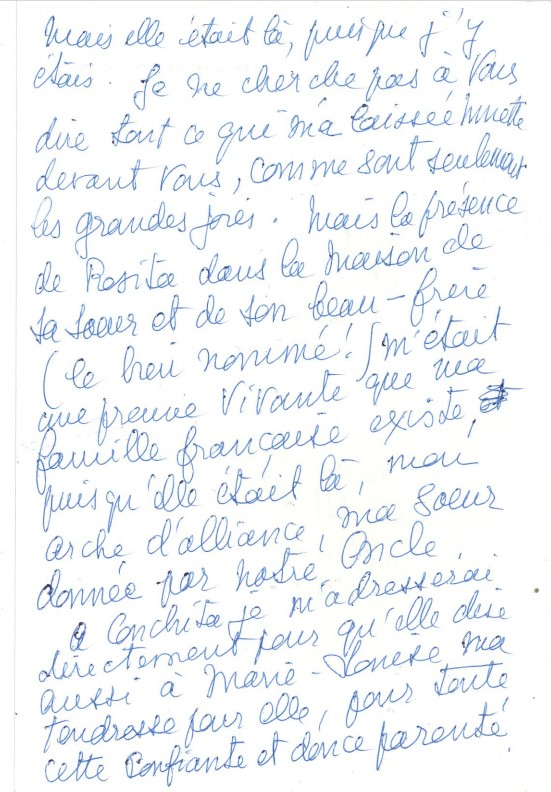 Mais elle était là, puisque j'y
étais. Je ne cherche pas à vous
dire tout ce qui m'a laissée muette
devant vous, comme sont seulement
les grandes joies. Mais la présence
de Rosita dans la maison de
sa soeur et de son beau-frère
(le bien nommé!) m'était
une preuve vivante que ma
famille française existe,
puisqu'elle était là, mon
arche d'alliance, ma soeur
donnée par notre Oncle.
A Conchita je m'adresserai
directement pour qu'elle dise
aussi à Marie-Louise ma
tendresse pour elle, pour toute
cette confiante et douce parenté.